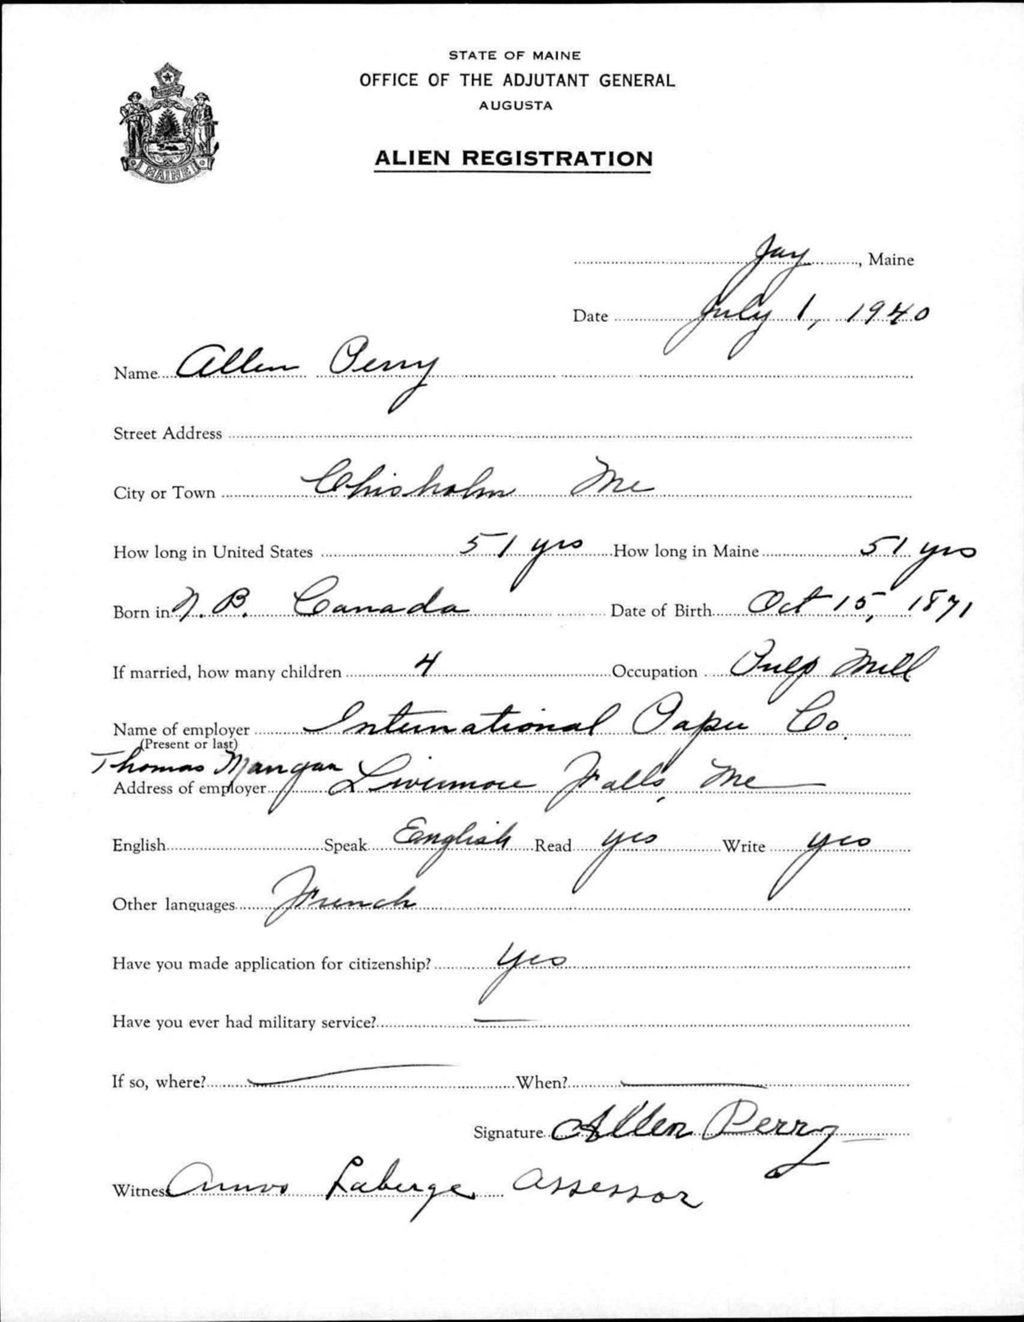 STATE OF MAINE
OFFICE OF THE ADJUTANT GENERAL
AUGUSTA
ALIEN REGISTRATION
MAINE
Jay, Maine
Date July 1, 1940
Name Allen Perry
Street Address
City or Town Chisholm Me
How long in United States 51 yrs How long in Maine 51 yrs
Born in N.B. Canada Date of Birth Oct 15, 1871
If married, how many children 4 Occupation Pulp Mill
Name of employer International Paper Co.
(Present or last)
Thomas Mangan
Address of employer Livermore Falls, Me
English Speak Eanglish Read yes Write yes
Other languages French
Have you made application for citizenship? Yes
Have you ever had military service? —
If so, where? — When? —
Signature Allen Perry
Witness Laberge Assessor